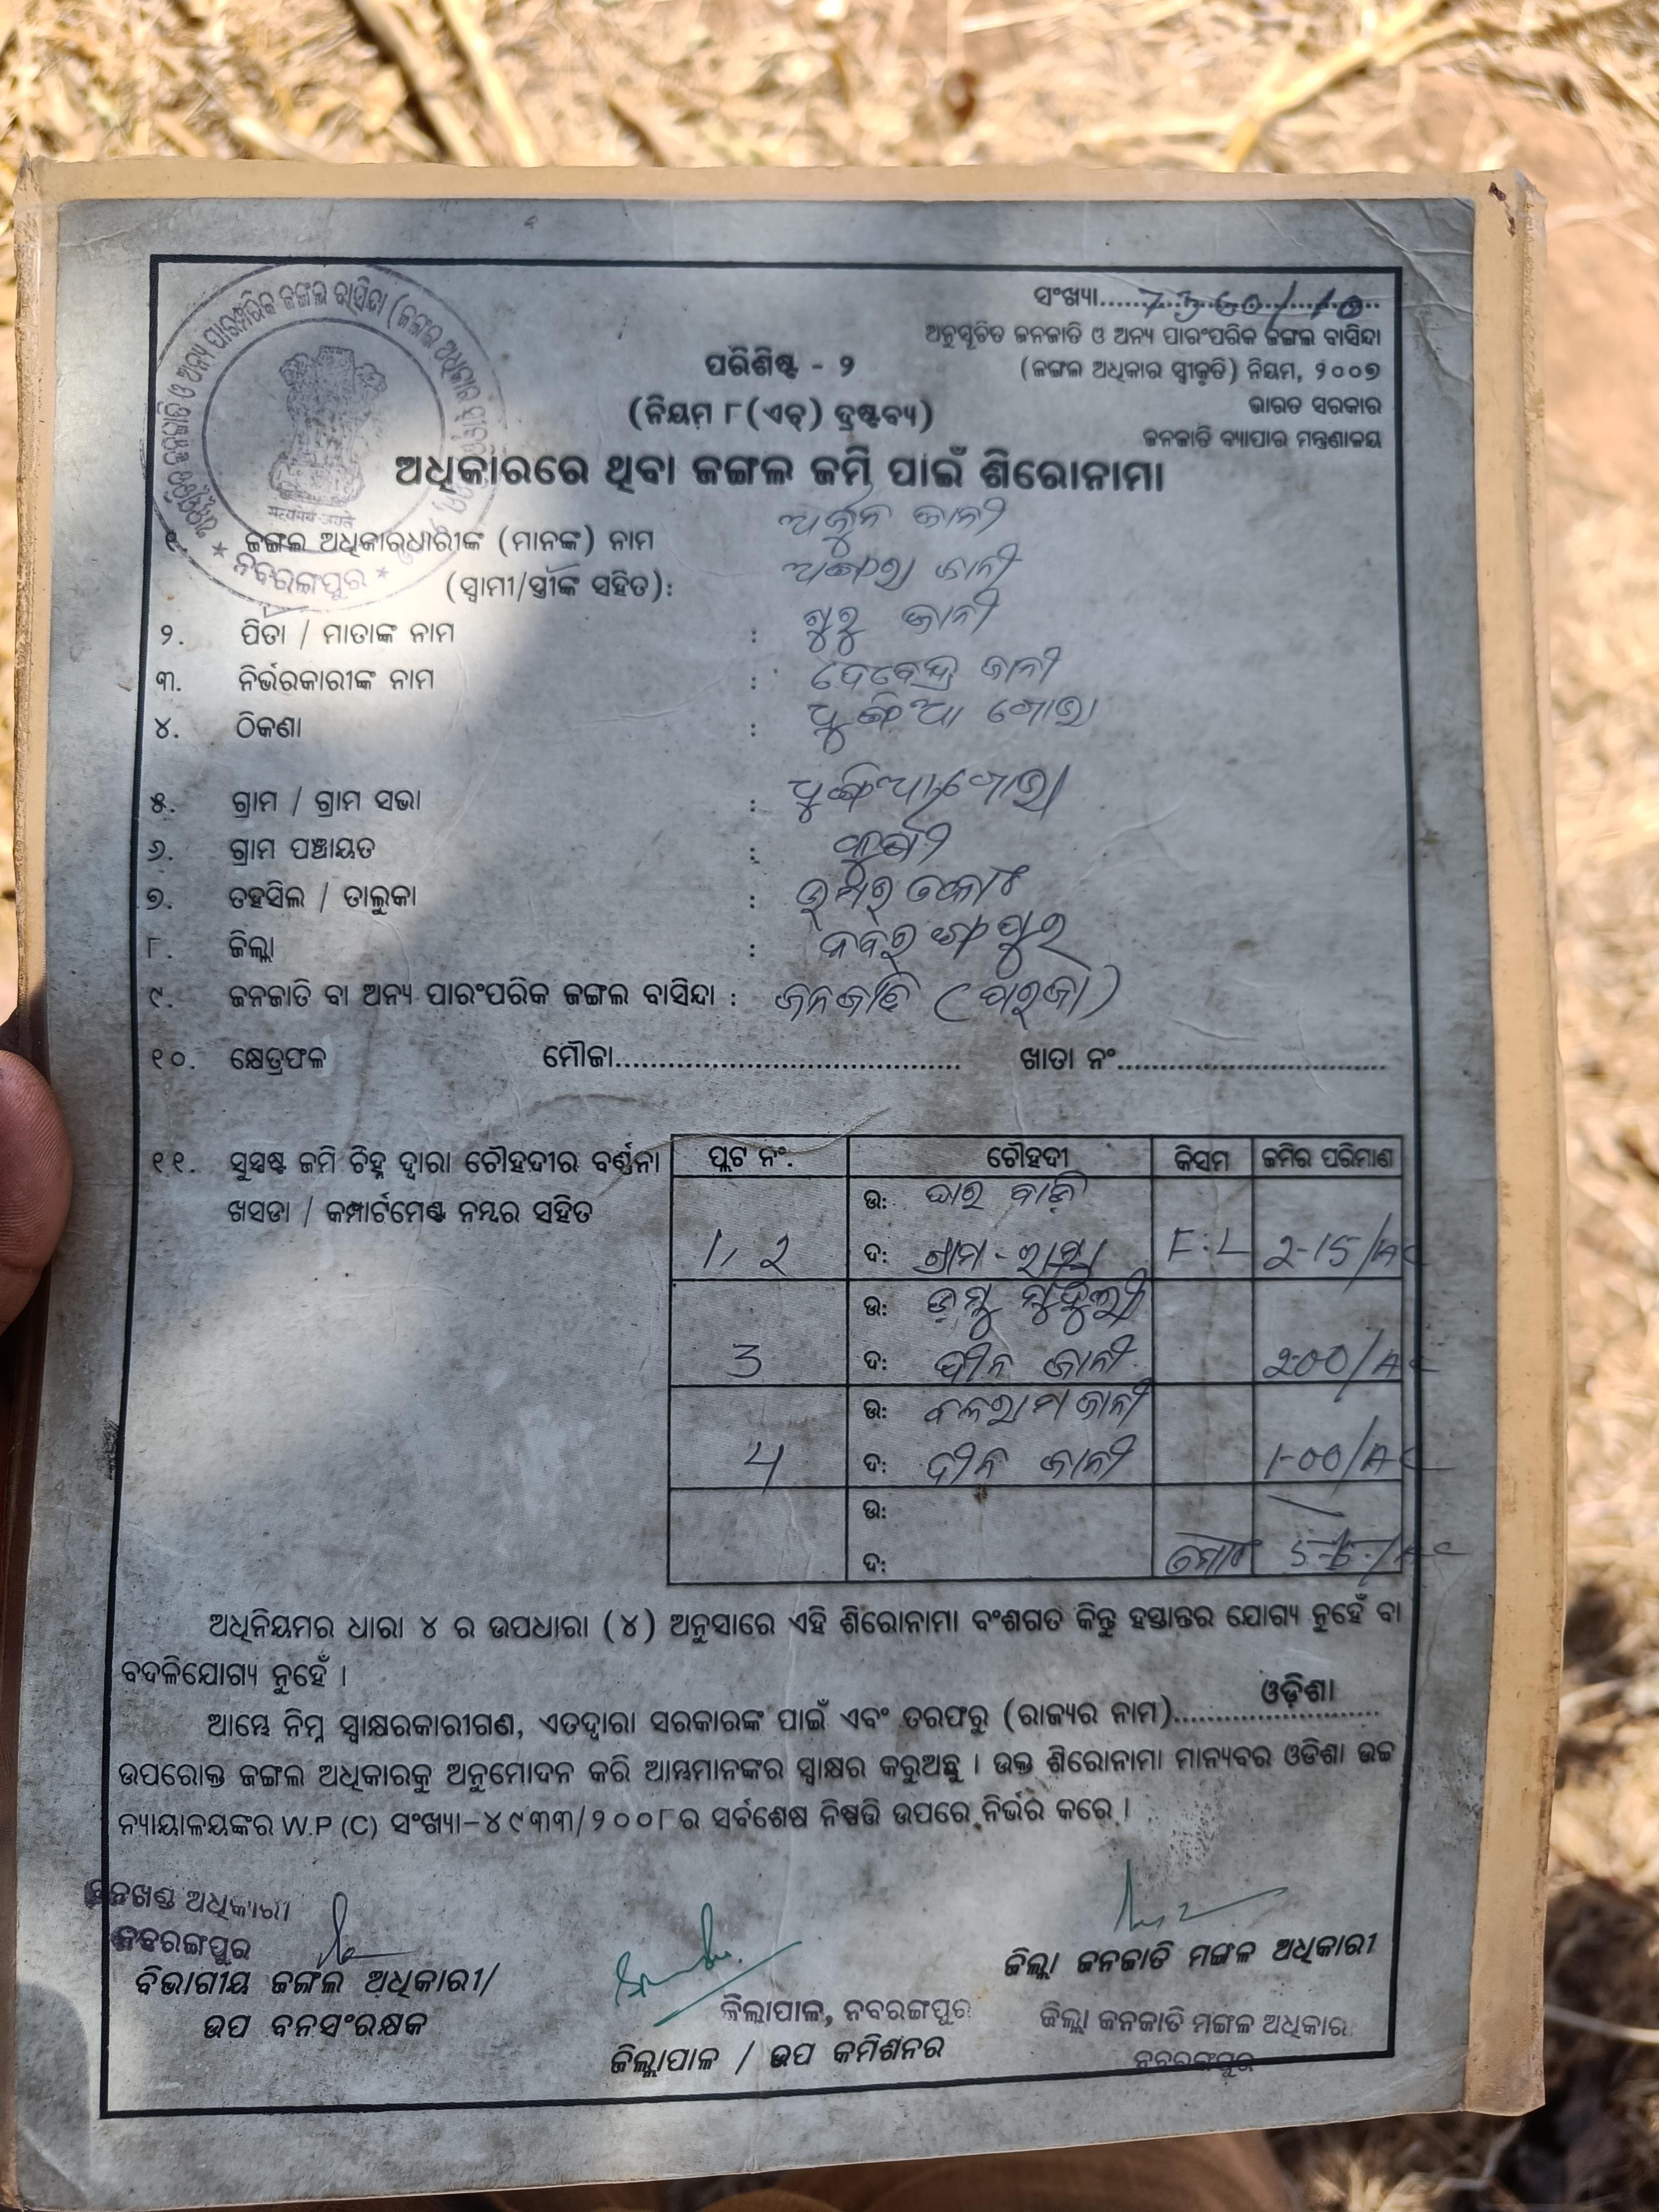 ସଂଖ୍ୟା.....7360/10
ଅନୁସୂଚିତ ଜନଜାତି ଓ ଅନ୍ୟ ପାରଂପରିକ ଜଙ୍ଗଲ ବାସିନ୍ଦା
(ଜଙ୍ଗଲ ଅଧିକାର ସ୍ୱୀକୃତି) ନିୟମ, ୨୦୦୭
ଭାରତ ସରକାର
ଜନଜାତି ବ୍ୟାପାର ମନ୍ତ୍ରଣାଳୟ
ପରିଶିଷ୍ଟ - ୨
(ନିୟମ ୮(ଏଚ୍) ଦ୍ରଷ୍ଟବ୍ୟ)
ଅଧିକାରରେ ଥିବା ଜଙ୍ଗଲ ଜମି ପାଇଁ ଶିରୋନାମା
ଅନୁସୂଚିତ ଜନଜାତି ଓ ଅନ୍ୟ ପାରଂପରିକ ଜଙ୍ଗଲ ବାସିନ୍ଦା (ଜଙ୍ଗଲ ଅଧିକାର
सत्यमेव जयते
* ନବରଙ୍ଗପୁର *
୧. ଜଙ୍ଗଲ ଅଧିକାରଧାରୀଙ୍କ (ମାନଙ୍କ) ନାମ ଅର୍ଜୁନ ଜାନୀ
(ସ୍ୱାମୀ/ସ୍ତ୍ରୀଙ୍କ ସହିତ): ଜାନୀ
୨. ପିତା / ମାତାଙ୍କ ନାମ : ଗୁରୁ ଜାନୀ
୩. ନିର୍ଭରକାରୀଙ୍କ ନାମ : ଦେବେନ୍ଦ୍ର ଜାନୀ
୪. ଠିକଣା :
୫. ଗ୍ରାମ / ଗ୍ରାମ ସଭା :
୬. ଗ୍ରାମ ପଞ୍ଚାୟତ :
୭. ତହସିଲ / ତାଲୁକା : ଉମରକୋଟ
୮. ଜିଲ୍ଲା : ନବରଙ୍ଗପୁର
୯. ଜନଜାତି ବା ଅନ୍ୟ ପାରଂପରିକ ଜଙ୍ଗଲ ବାସିନ୍ଦା : ଜନଜାତି (ପରଜା)
୧୦. କ୍ଷେତ୍ରଫଳ ମୌଜା........................................ ଖାତା ନଂ................................
୧୧. ସୁସ୍ପଷ୍ଟ ଜମି ଚିହ୍ନ ଦ୍ୱାରା ଚୌହଦୀର ବର୍ଣ୍ଣନା
ଖସଡା / କମ୍ପାର୍ଟମେଣ୍ଟ ନମ୍ବର ସହିତ
ପ୍ଲଟ ନଂ. ଚୌହଦୀ କିସମ ଜମିର ପରିମାଣ
ଉ: ଘର ବାଡ଼ି
1, 2 ଦ: ଗ୍ରାମ - ରାସ୍ତା F.L 2-15/AC
ଉ: ଡମ୍ବୁ
3 ଦ: ଜାନୀ 2-00/AC
ଉ: ବଳରାମ ଜାନୀ
4 ଦ: ଦୀନ ଜାନୀ 1-00/AC
ଉ:
ଦ: ମୋଟ
ଅଧିନିୟମର ଧାରା ୪ ର ଉପଧାରା (୪) ଅନୁସାରେ ଏହି ଶିରୋନାମା ବଂଶଗତ କିନ୍ତୁ ହସ୍ତାନ୍ତର ଯୋଗ୍ୟ ନୁହେଁ ବା
ବଦଳିଯୋଗ୍ୟ ନୁହେଁ ।
ଆମ୍ଭେ ନିମ୍ନ ସ୍ୱାକ୍ଷରକାରୀଗଣ, ଏତଦ୍ୱାରା ସରକାରଙ୍କ ପାଇଁ ଏବଂ ତରଫରୁ (ରାଜ୍ୟର ନାମ)......ଓଡ଼ିଶା......
ଉପରୋକ୍ତ ଜଙ୍ଗଲ ଅଧିକାରକୁ ଅନୁମୋଦନ କରି ଆମ୍ଭମାନଙ୍କର ସ୍ୱାକ୍ଷର କରୁଅଛୁ । ଉକ୍ତ ଶିରୋନାମା ମାନ୍ୟବର ଓଡିଶା ଉଚ୍ଚ
ନ୍ୟାୟାଳୟଙ୍କର W.P (C) ସଂଖ୍ୟା-୪୯୩୩/୨୦୦୮ର ସର୍ବଶେଷ ନିଷ୍ପତ୍ତି ଉପରେ ନିର୍ଭର କରେ ।
ବନଖଣ୍ଡ ଅଧିକାରୀ
ନବରଙ୍ଗପୁର
ବିଭାଗୀୟ ଜଙ୍ଗଲ ଅଧିକାରୀ/
ଉପ ବନସଂରକ୍ଷକ
ଜିଲ୍ଲାପାଳ, ନବରଙ୍ଗପୁର
ଜିଲ୍ଲାପାଳ / ଉପ କମିଶନର
ଜିଲ୍ଲା ଜନଜାତି ମଙ୍ଗଳ ଅଧିକାରୀ
ଜିଲ୍ଲା ଜନଜାତି ମଙ୍ଗଳ ଅଧିକାରୀ
ନବରଙ୍ଗପୁର